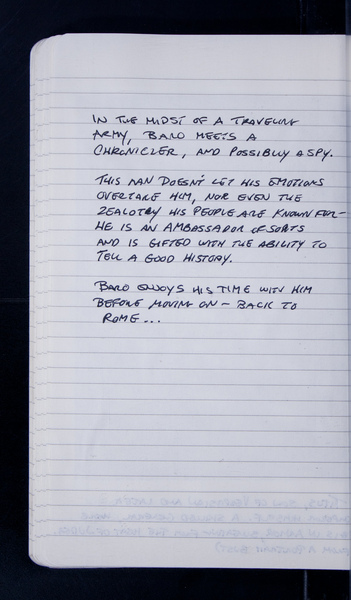 IN THE MIDST OF A TRAVELING
ARMY, BARD MEETS A
CHRONICLER, AND POSSIBLY A SPY.
THIS MAN DOESN'T LET HIS EMOTIONS
OVERTAKE HIM, NOR EVEN THE
ZEALOTRY HIS PEOPLE ARE KNOWN FOR—
HE IS AN AMBASSADOR OF SORTS
AND IS GIFTED WITH THE ABILITY TO
TELL A GOOD HISTORY.
BARD ENJOYS HIS TIME WITH HIM
BEFORE MOVING ON — BACK TO
ROME...